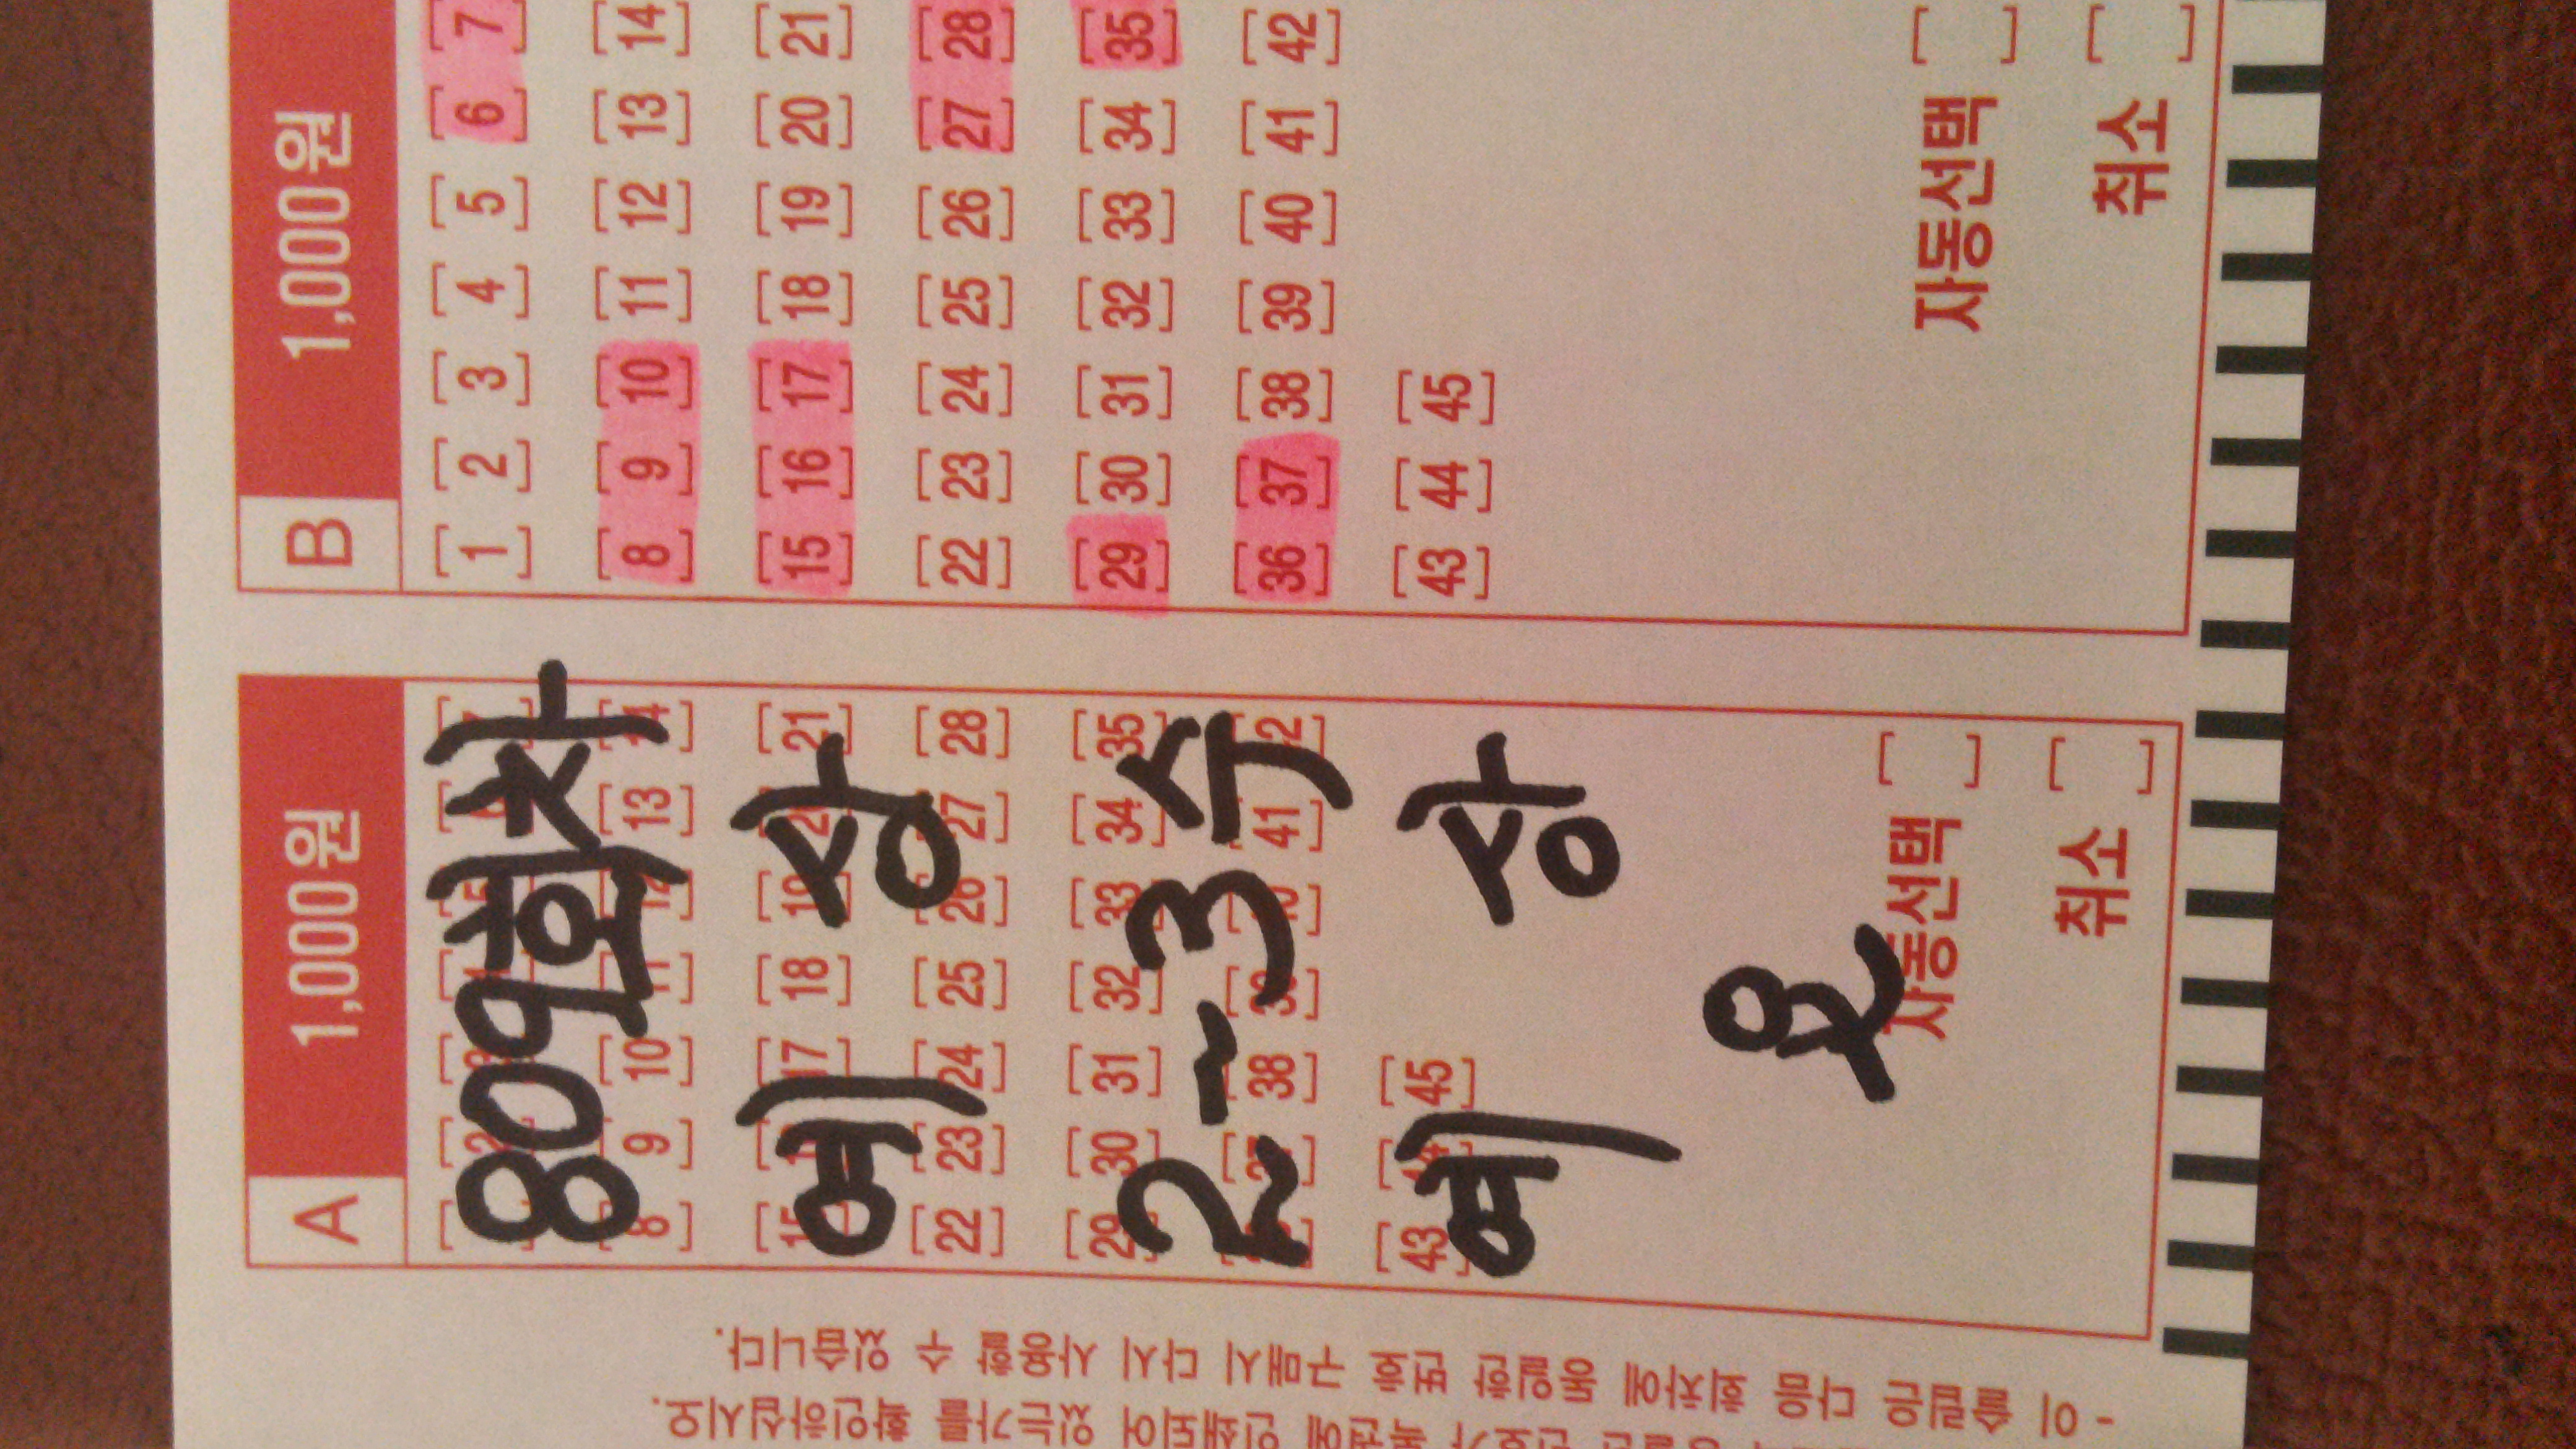 A 1,000원
809회차
예상
2~3수
예상
용
[8] [9] [10] [13]
[17] [18] [21]
[22] [23] [24] [25] [28]
[29] [30] [31] [32] [33] [34] [35]
[38] [41]
[43] [45]
자동선택 [ ]
취소 [ ]
B 1,000원
[1] [2] [3] [4] [5] [6] [7]
[8] [9] [10] [11] [12] [13] [14]
[15] [16] [17] [18] [19] [20] [21]
[22] [23] [24] [25] [26] [27] [28]
[29] [30] [31] [32] [33] [34] [35]
[36] [37] [38] [39] [40] [41] [42]
[43] [44] [45]
자동선택 [ ]
취소 [ ]
- 이 슬립은 다음 회차에 동일한 번호 구매시 다시 사용할 수 있습니다.
번호가 복권에 인쇄되어 있는가를 확인하십시오.